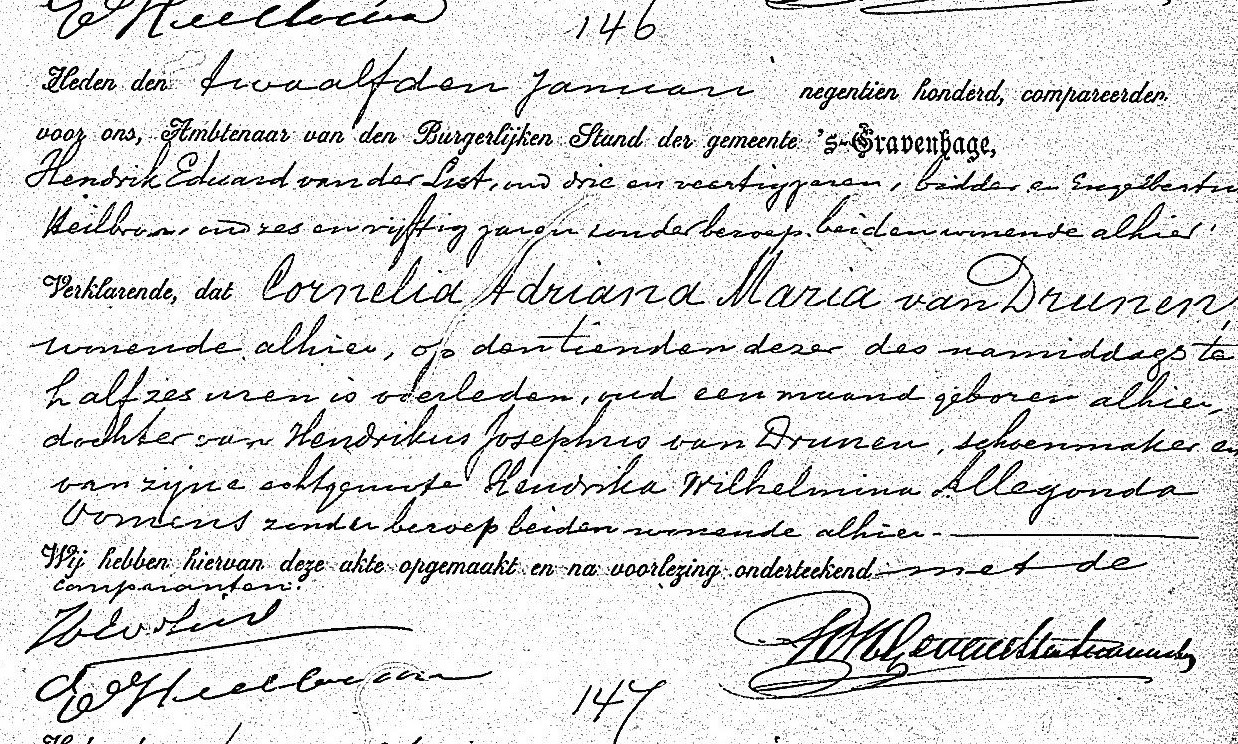 146
Heden den twaalfden Januari negentien honderd, compareerden
voor ons, Ambtenaar van den Burgerlijken Stand der gemeente 's-Gravenhage,
Hendrik Eduard van der List, oud drie en veertig jaren, bidder en Engelbertus
Heilbron, oud zes en vijftig jaren zonder beroep, beiden wonende alhier
Verklarende, dat Cornelia Adriana Maria van Drunen,
wonende alhier, op den tienden dezer des namiddags te
half zes uren is overleden, oud een maand geboren alhier,
dochter van Hendrikus Josephus van Drunen, schoenmaker en
van zijne echtgenoote Hendrika Wilhelmina Allegonda
zonder beroep beiden wonende alhier.
Wij hebben hiervan deze akte opgemaakt en na voorlezing onderteekend met de
comparanten.
147